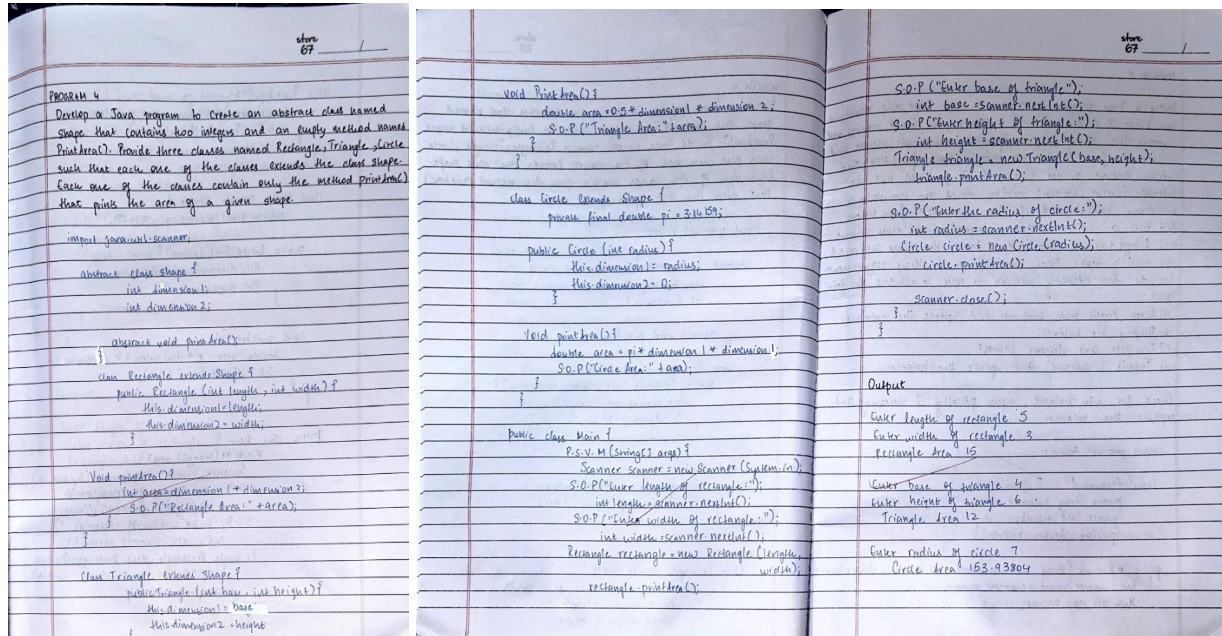 store
67
PROGRAM 4
Develop a Java program to create an abstract class named
shape that contains two integers and an empty method names
PrintArea(). Provide three classes named Rectangle, Triangle, Circle
such that each one of the classes extends the class shape.
Each one of the classes contain only the method printArea()
that prints the area of a given shape.
import java.util.scanner;
abstract class shape {
int dimension1;
int dimension2;
abstract void printArea();
}
class Rectangle extends Shape {
public Rectangle (int length, int width) {
this.dimension1=length;
this.dimension2 = width;
}
Void printArea() {
int area=dimension1 * dimension2;
S.O.P("Rectangle Area:" +area);
}
}
Class Triangle extends Shape {
public Triangle (int base, int height) {
this.dimension1 = base
this.dimension2 = height
void PrintArea() {
double area =0.5 * dimension1 * dimension 2;
S.O.P ("Triangle Area:"+area);
}
}
class Circle extends Shape {
private final double pi = 3.14159;
public Circle (int radius) {
this.dimension1= radius;
this.dimension2= 0;
}
Void printArea() {
double area = pi* dimension 1 * dimension 1;
S.O.P("Circle Area:" +area);
}
}
public class Main {
P.S.V.M (String[] args) {
Scanner scanner = new Scanner (System.in);
S.O.P("Enter length of rectangle:");
int length = scanner.nextInt();
S.O.P ("Enter width of rectangle:");
int width =scanner.nextInt();
Rectangle rectangle = new Rectangle (length,
width);
rectangle.printArea();
store
67
S.O.P ("Enter base of triangle");
int base =scanner.nextInt();
S.O.P("Enter height of triangle:");
int height = scanner.nextInt();
Triangle triangle = new Triangle (base, height);
triangle.printArea();
S.O.P ("Enter the radius of circle:");
int radius = scanner.nextInt();
Circle circle = new Circle (radius);
circle.printArea();
scanner.close();
}
}
Output
Enter length of rectangle 5
Enter width of rectangle 3
Rectangle Area 15
Enter base of triangle 4
Enter height of triangle 6
Triangle Area 12
Enter radius of circle 7
Circle Area 153.93804